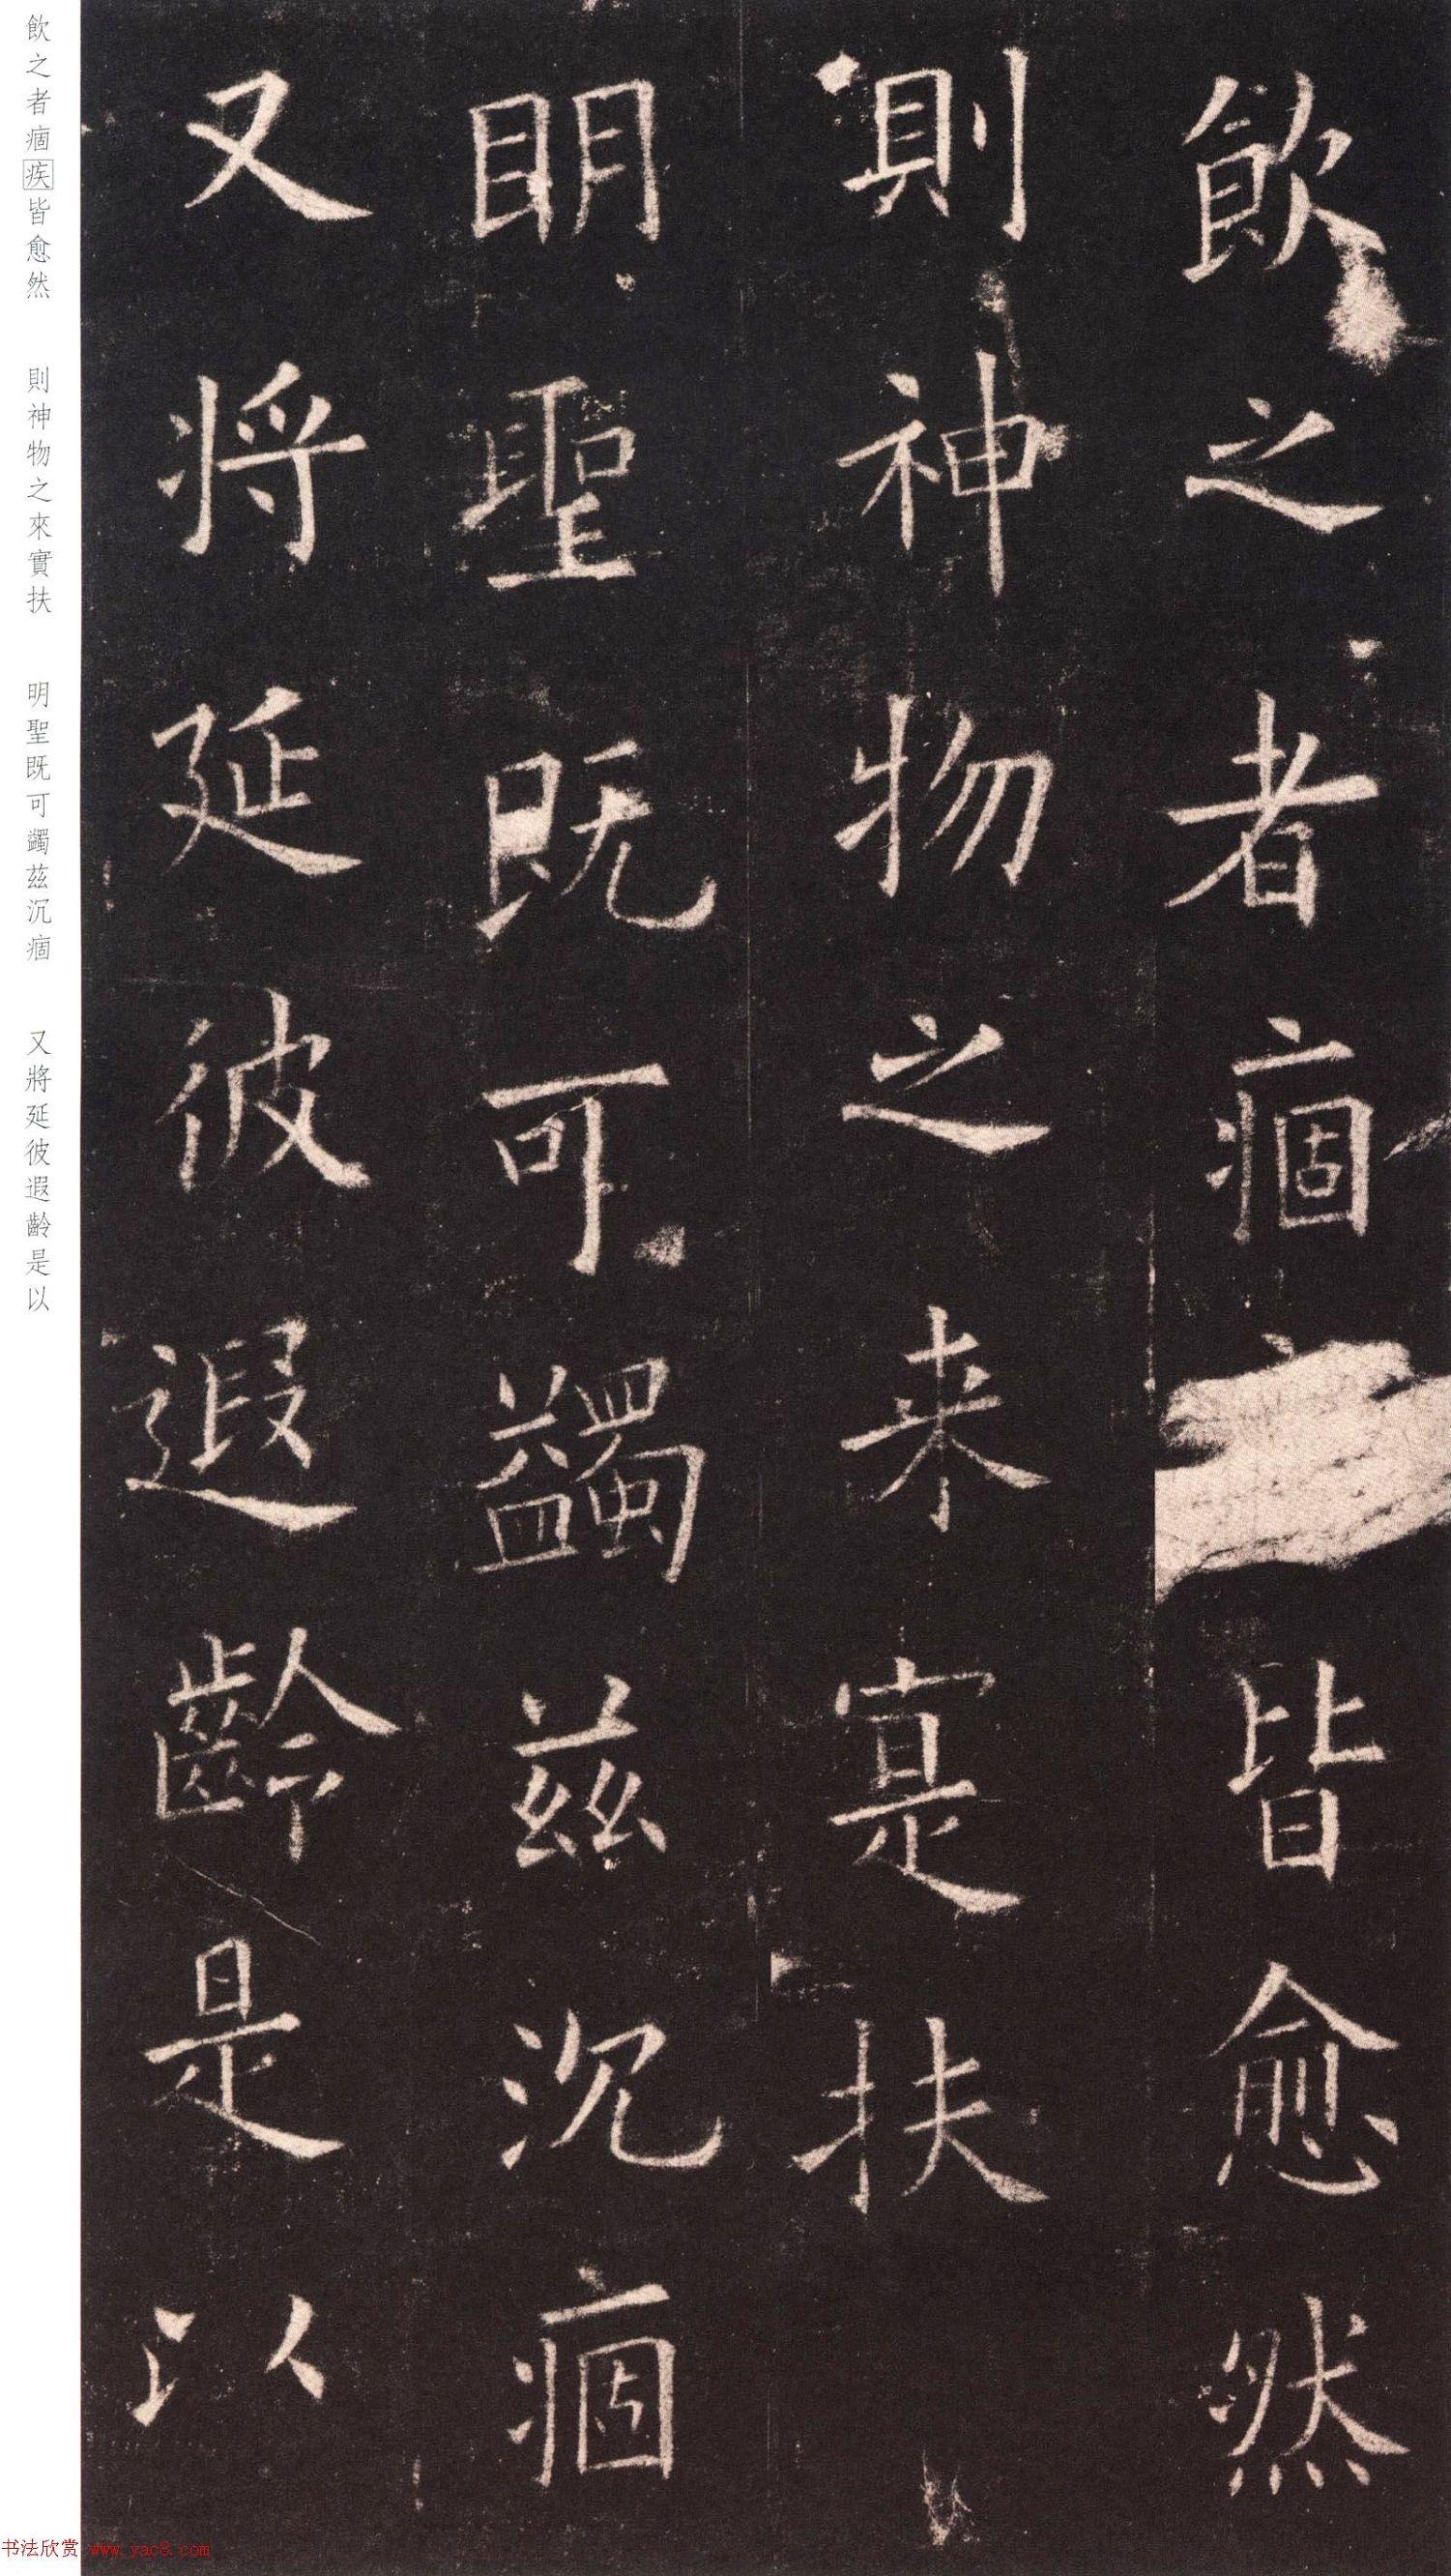 飲之者痼皆愈然
則神物之来寔扶
明聖既可蠲兹沉痼
又将延彼遐齡是以
飲之者痼疾皆愈然　則神物之來實扶　明聖既可蠲兹沉痼　又將延彼遐齡是以
书法欣赏 www.yac8.com